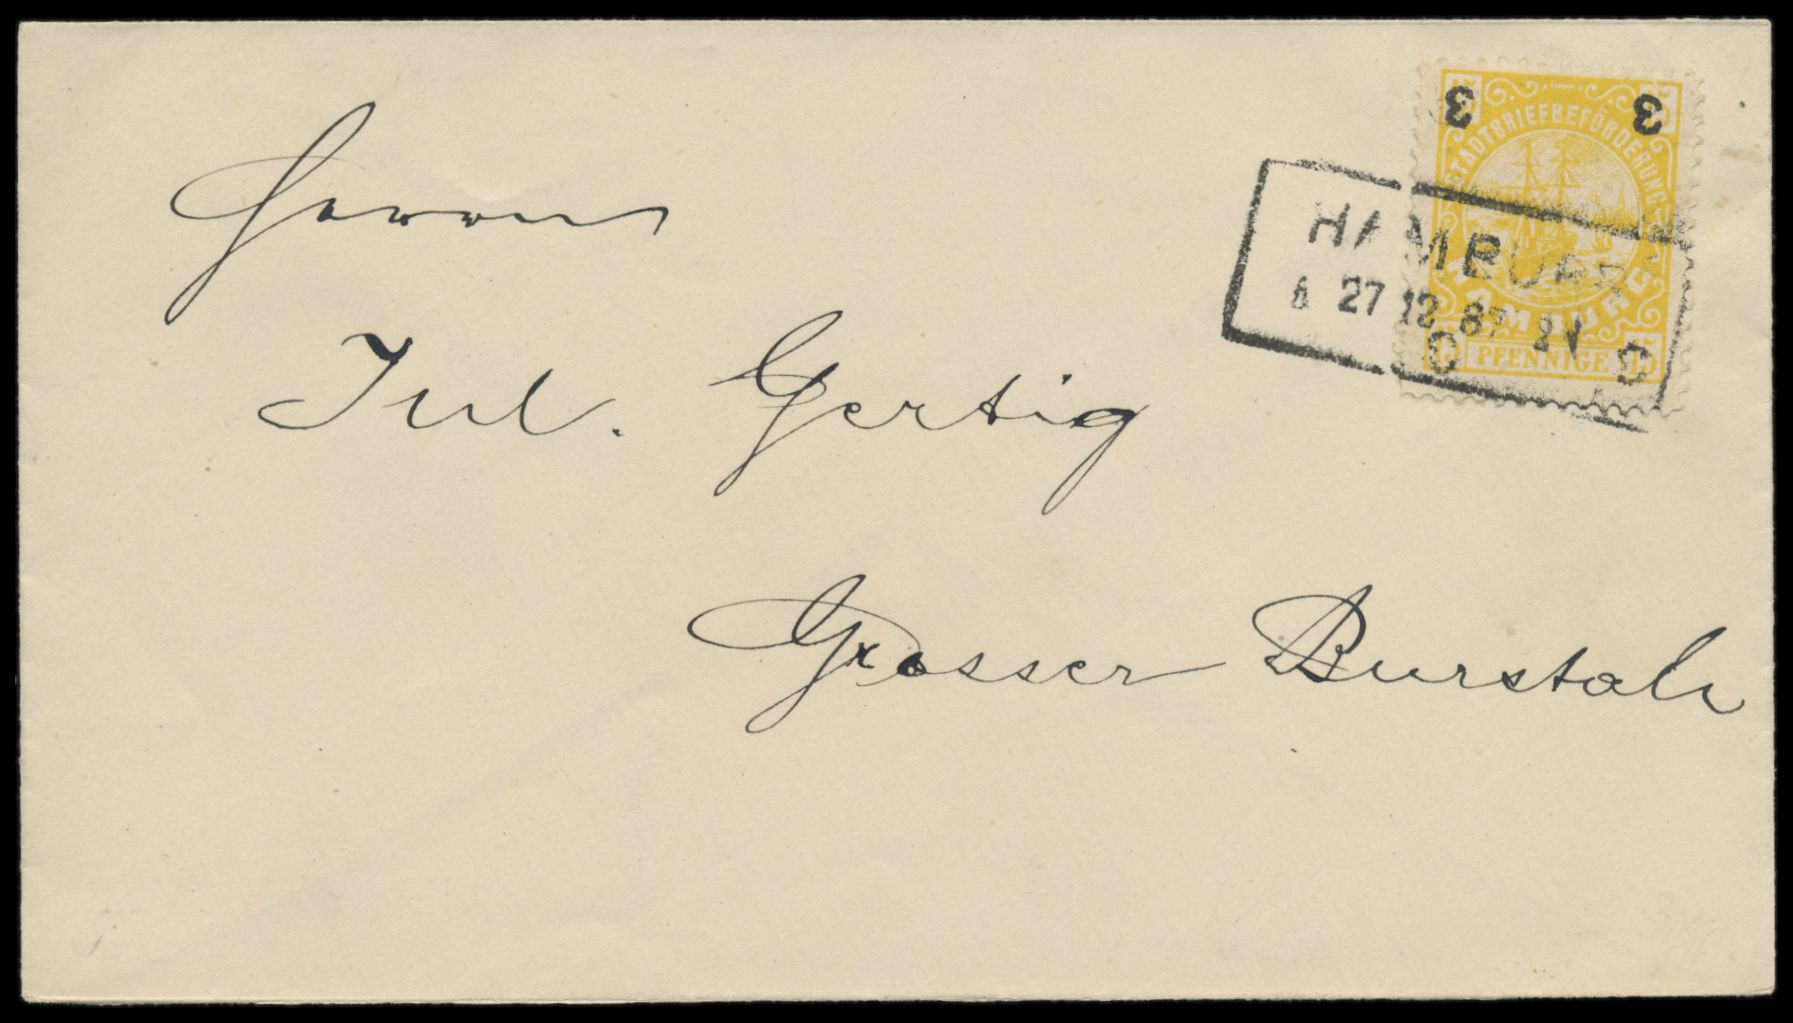 Herrn
Jul. Gertig
Grosser Burstah
3 3
STADTBRIEFBEFÖRDERUNG
HAMBURG
15 PFENNIGE 15
HAMBURG
27 12 87